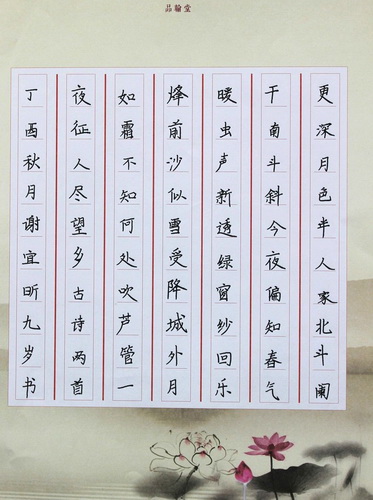 品翰堂
更深月色半人家北斗阑
干南斗斜今夜偏知春气
暖虫声新透绿窗纱回乐
烽前沙似雪受降城外月
如霜不知何处吹芦管一
夜征人尽望乡古诗两首
丁酉秋月谢宜昕九岁书